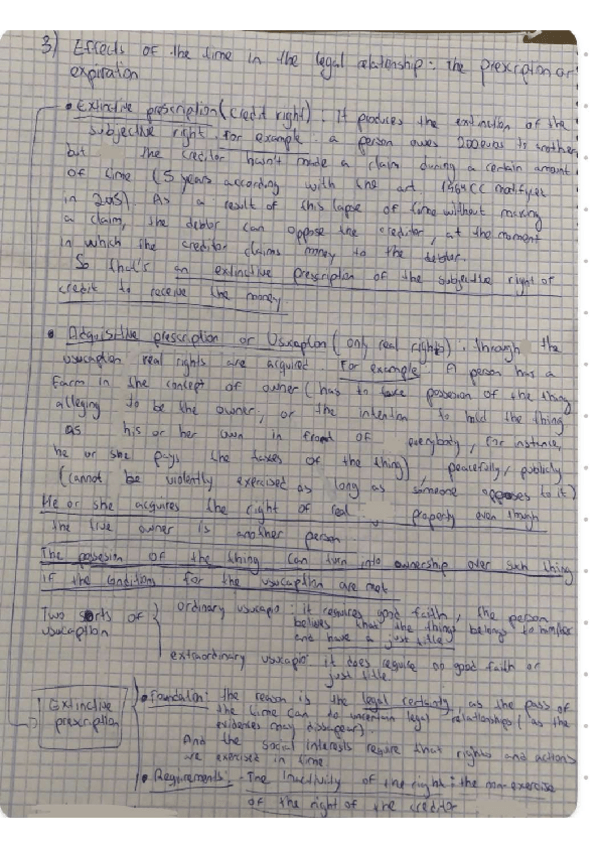 3) Effects of the time in the legal relationship: The prexcription or
expiration
• Extinctive prescription (credit right): It produces the extinction of the
subjective right. For example: a person owes 200 euros to another
but the creditor hasn't made a claim during a certain amount
of time (5 years according with the art. 1964 CC modifyed
in 2015). As a result of this lapse of time without making
a claim, the debtor can oppose the creditor, at the moment
in which the creditor claims money to the debtor.
So that's an extinctive prescription of the subjective right of
credit to receive the money.
• Adquisitive prescription or Usucapion (only real rights): through the
usucapion real rights are acquired. For example: A person has a
farm in the concept of owner (has to take possesion of the thing
alleging to be the owner, or the intention to hold the thing
as his or her own in front of everybody, for instance,
he or she pays the taxes of the thing), peacefully, publicly
(cannot be violently exercised as long as someone opposes to it)
He or she acquires the right of real property even though
the true owner is another person.
The possesion of the thing can turn into ownership over such thing
if the conditions for the usucaption are met
Two sorts of
usucaption
ordinary usucapio: it requires good faith, the person
belives that the things belong to him/her
and have a just title
extraordinary usucapio: it does require no good faith or
just title.
Extinctive
prescription
• Foundation: the reason is the legal certainty, as the pass of
the time can to uncertain legal relationships (as the
evidences may dissapear).
And the social interests require that rights and actions
are exercised in time.
• Requirements: - The inactivity of the right: the non-exercise
of the right of the creditor